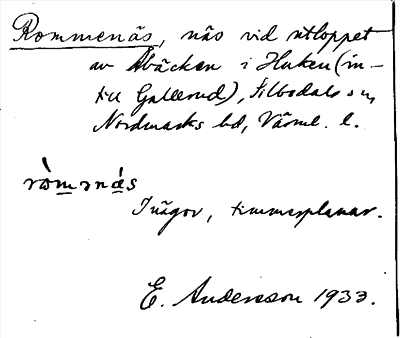 Rommenäs, näs vid utloppet
av Åbäcken i Huken (in-
till Gallerud), Silbodals sn,
Nordmarks hd, Värml. l.
ròmǝnás
Inägor, timmerplanar.
E. Andersson 1933.